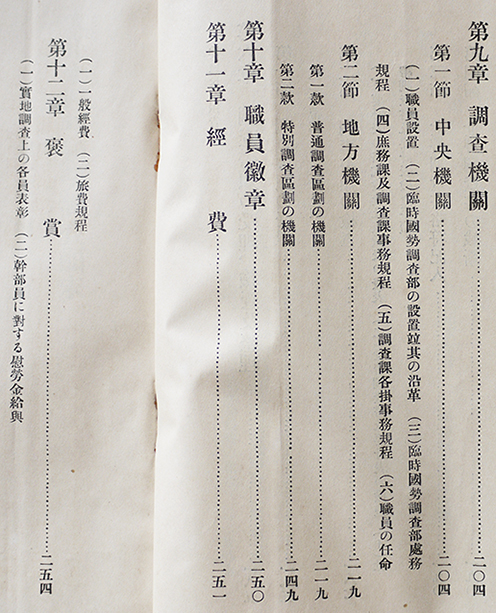 第九章 調査機關……二〇四
第一節 中央機關……二〇四
(一)職員設置 (二)臨時國勢調査部の設置竝其の沿革 (三)臨時國勢調査部處務
規程 (四)庶務課及調査課事務規程 (五)調査課各掛事務規程 (六)職員の任命
第二節 地方機關……二一九
第一款 普通調査區劃の機關……二一九
第二款 特別調査區劃の機關……二四九
第十章 職員徽章……二五〇
第十一章 經費……二五一
(一)一般經費 (二)旅費規程
第十二章 褒賞……二五四
(一)實地調査上の各員表彰 (二)幹部員に對する慰勞金給與